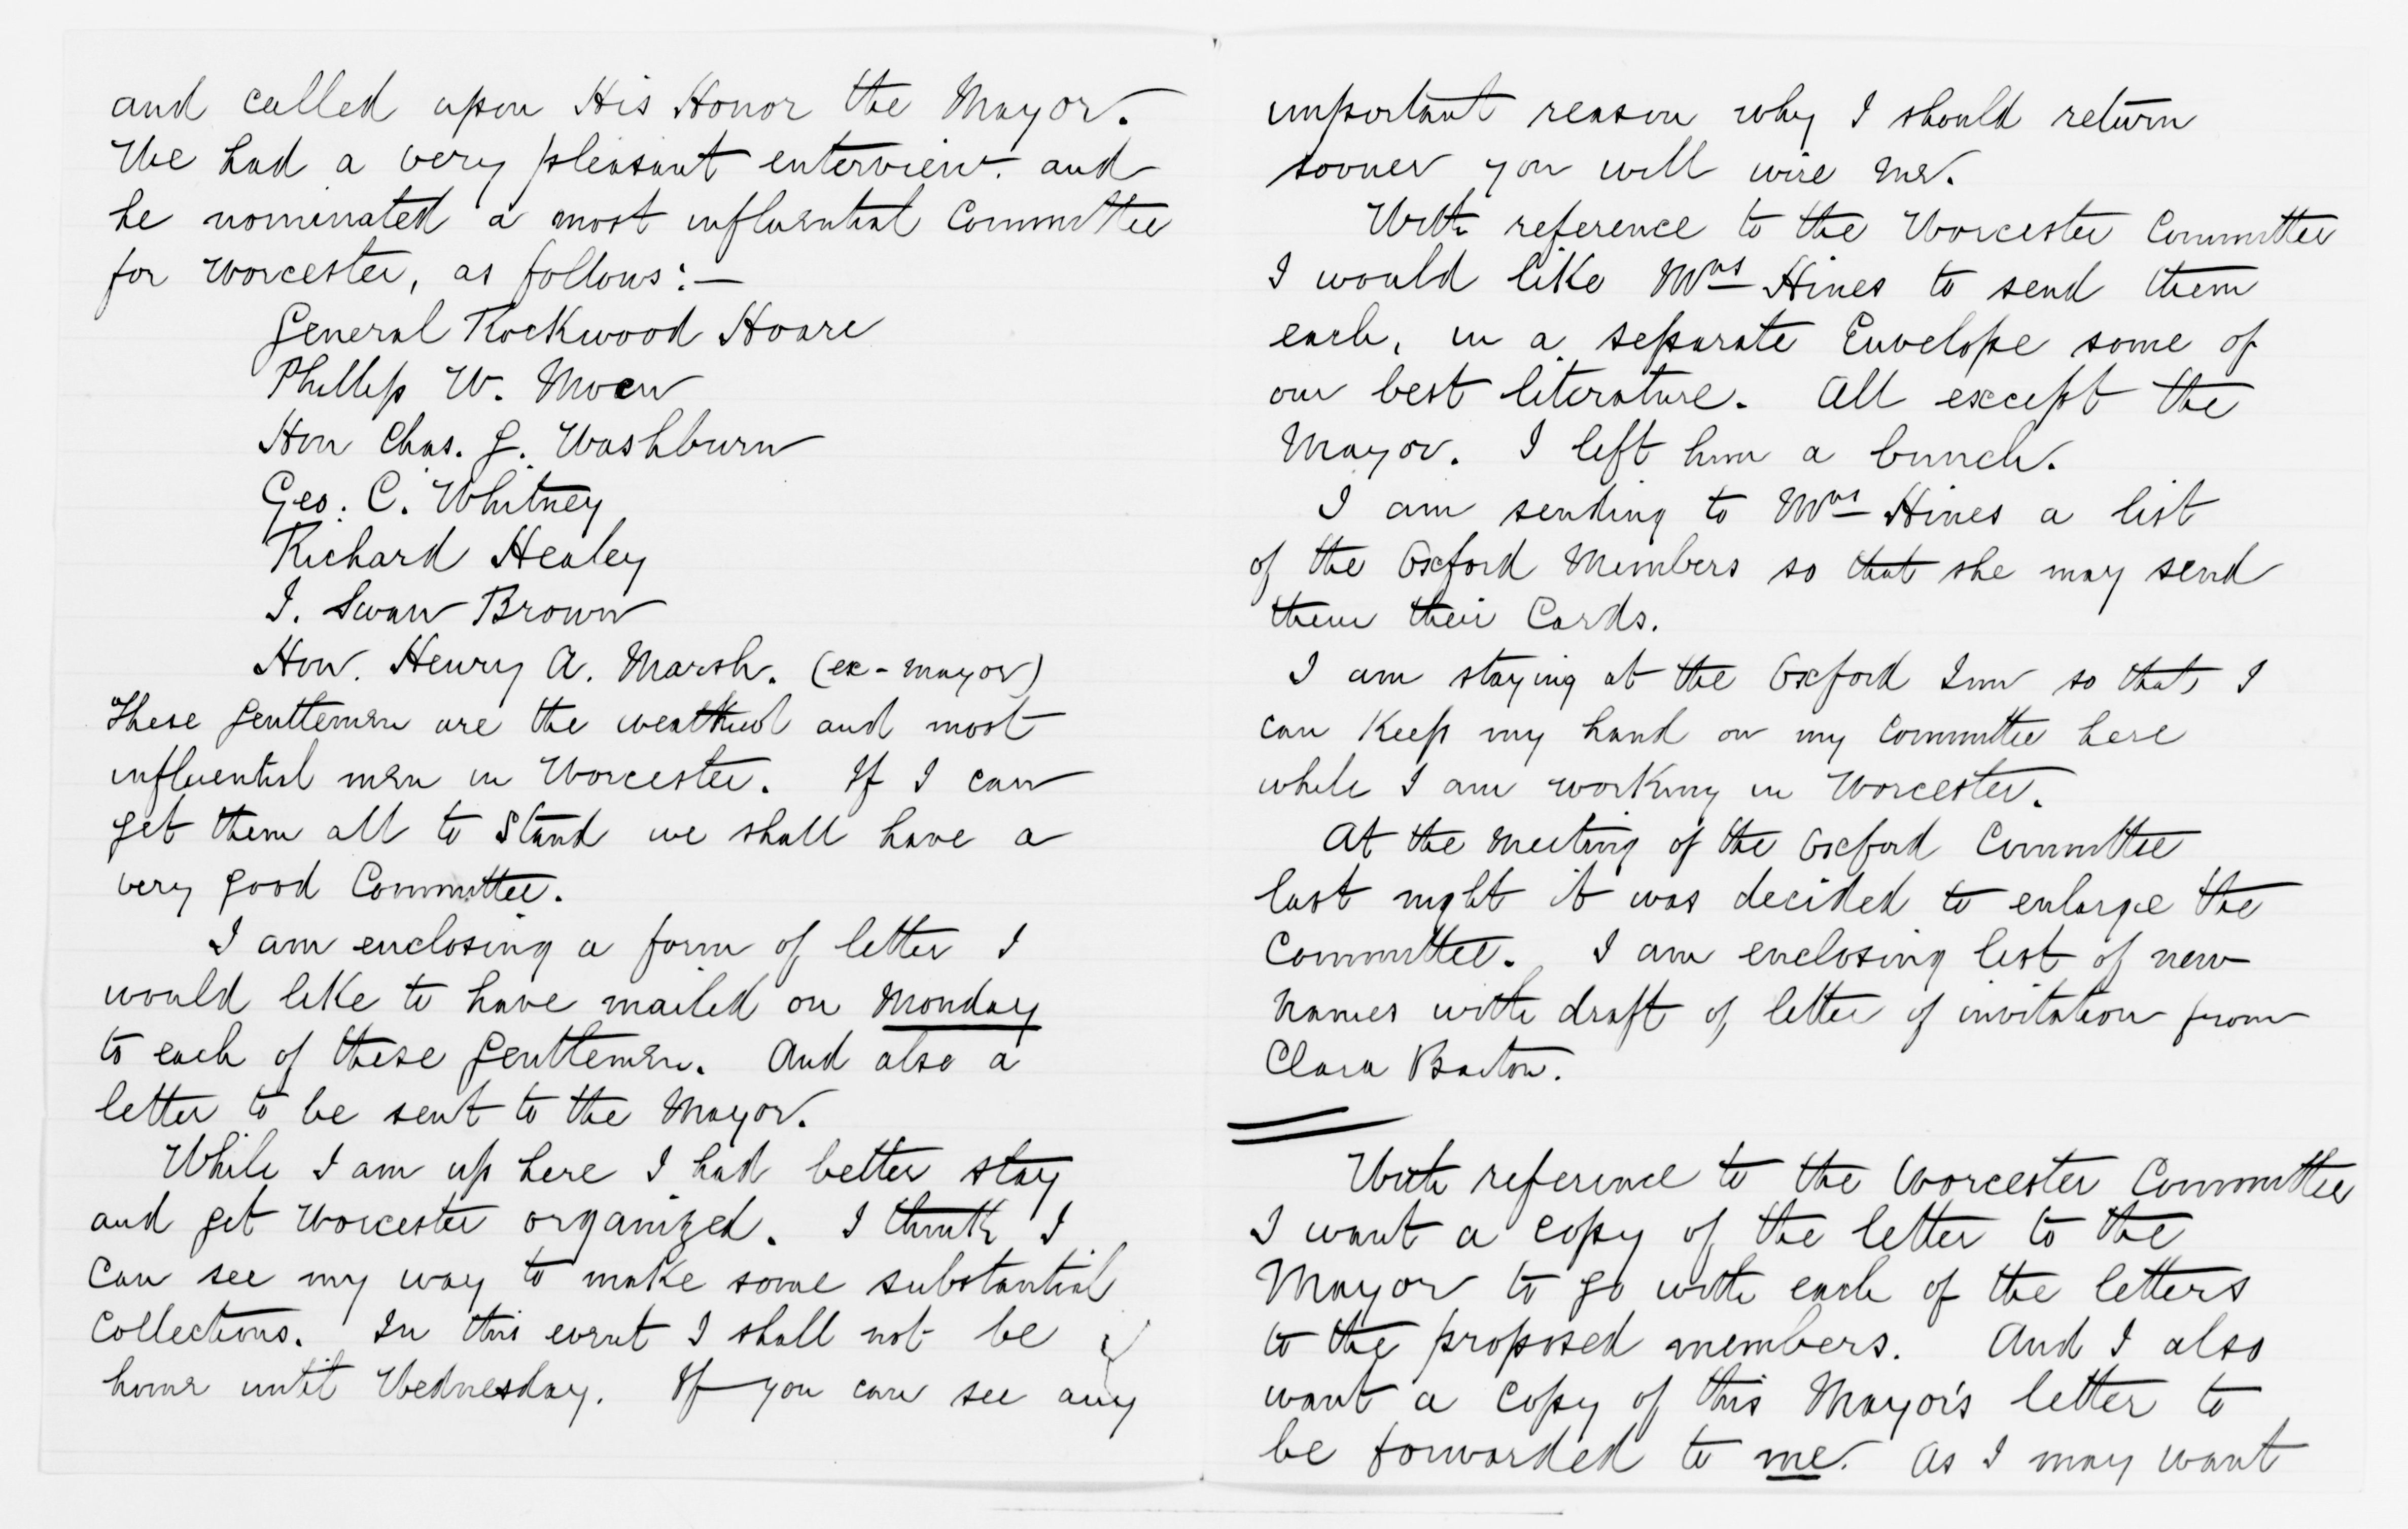 and called upon His Honor the Mayor.
We had a very pleasant enterview. and
he nominated a most influential Committee
for Worcester, as follows:—
General Rockwood Hoare
Phillip W. Moen
Hon Chas. G. Washburn
Geo. C. Whitney
Richard Healey
I. Swan Brown
Hon. Henry A. Marsh. (ex-mayor)
These gentlemen are the wealthiest and most
influential men in Worcester. If I can
get them all to stand we shall have a
very good Committee.
I am enclosing a form of letter I
would like to have mailed on Monday
to each of these gentlemen. And also a
letter to be sent to the Mayor.
While I am up here I had better stay
and get Worcester organized. I think I
can see my way to make some substantial
Collections. In this event I shall not be
home until Wednesday. If you can see any
important reason why I should return
sooner you will wire me.
With reference to the Worcester Committee
I would like Mrs Hines to send them
each, in a separate Envelope some of
our best literature. All except the
Mayor. I left him a bunch.
I am sending to Mrs Hines a list
of the Oxford Members so that she may send
them their Cards.
I am staying at the Oxford Inn so that I
can keep my hand on my Committee here
while I am working in Worcester.
At the Meeting of the Oxford Committee
last night it was decided to enlarge the
Committee. I am enclosing list of new
names with draft of letter of invitation from
Clara Barton.
With reference to the Worcester Committee
I want a copy of the letter to the
Mayor to go with each of the letters
to the proposed members. And I also
want a copy of this Mayor's letter to
be forwarded to me. As I may want